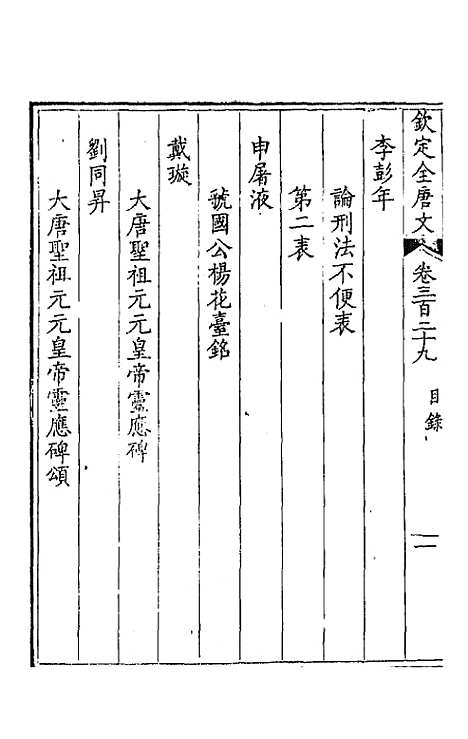 欽定全唐文 卷三百二十九 目錄 二
李彭年
論刑法不便表
第二表
申屠液
虢國公楊花臺銘
戴璇
大唐聖祖元元皇帝靈應碑
劉同昇
大唐聖祖元元皇帝靈應碑頌